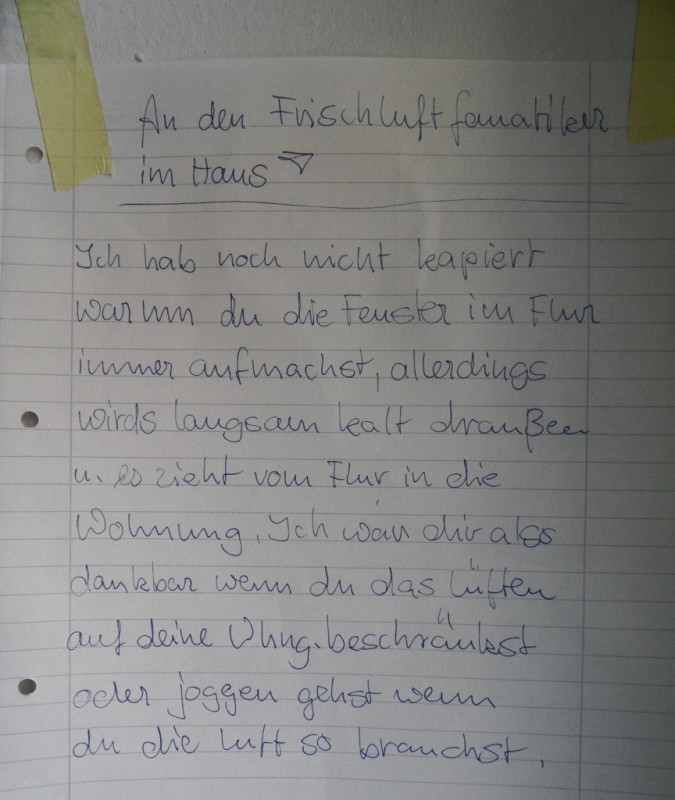 An den Frischluftfanatiker
im Haus
Ich hab noch nicht kapiert
warum du die Fenster im Flur
immer aufmachst, allerdings
wirds langsam kalt draußen
u. es zieht vom Flur in die
Wohnung. Ich wär dir also
dankbar wenn du das lüften
auf deine Whng. beschränkst
oder joggen gehst wenn
du die luft so brauchst.